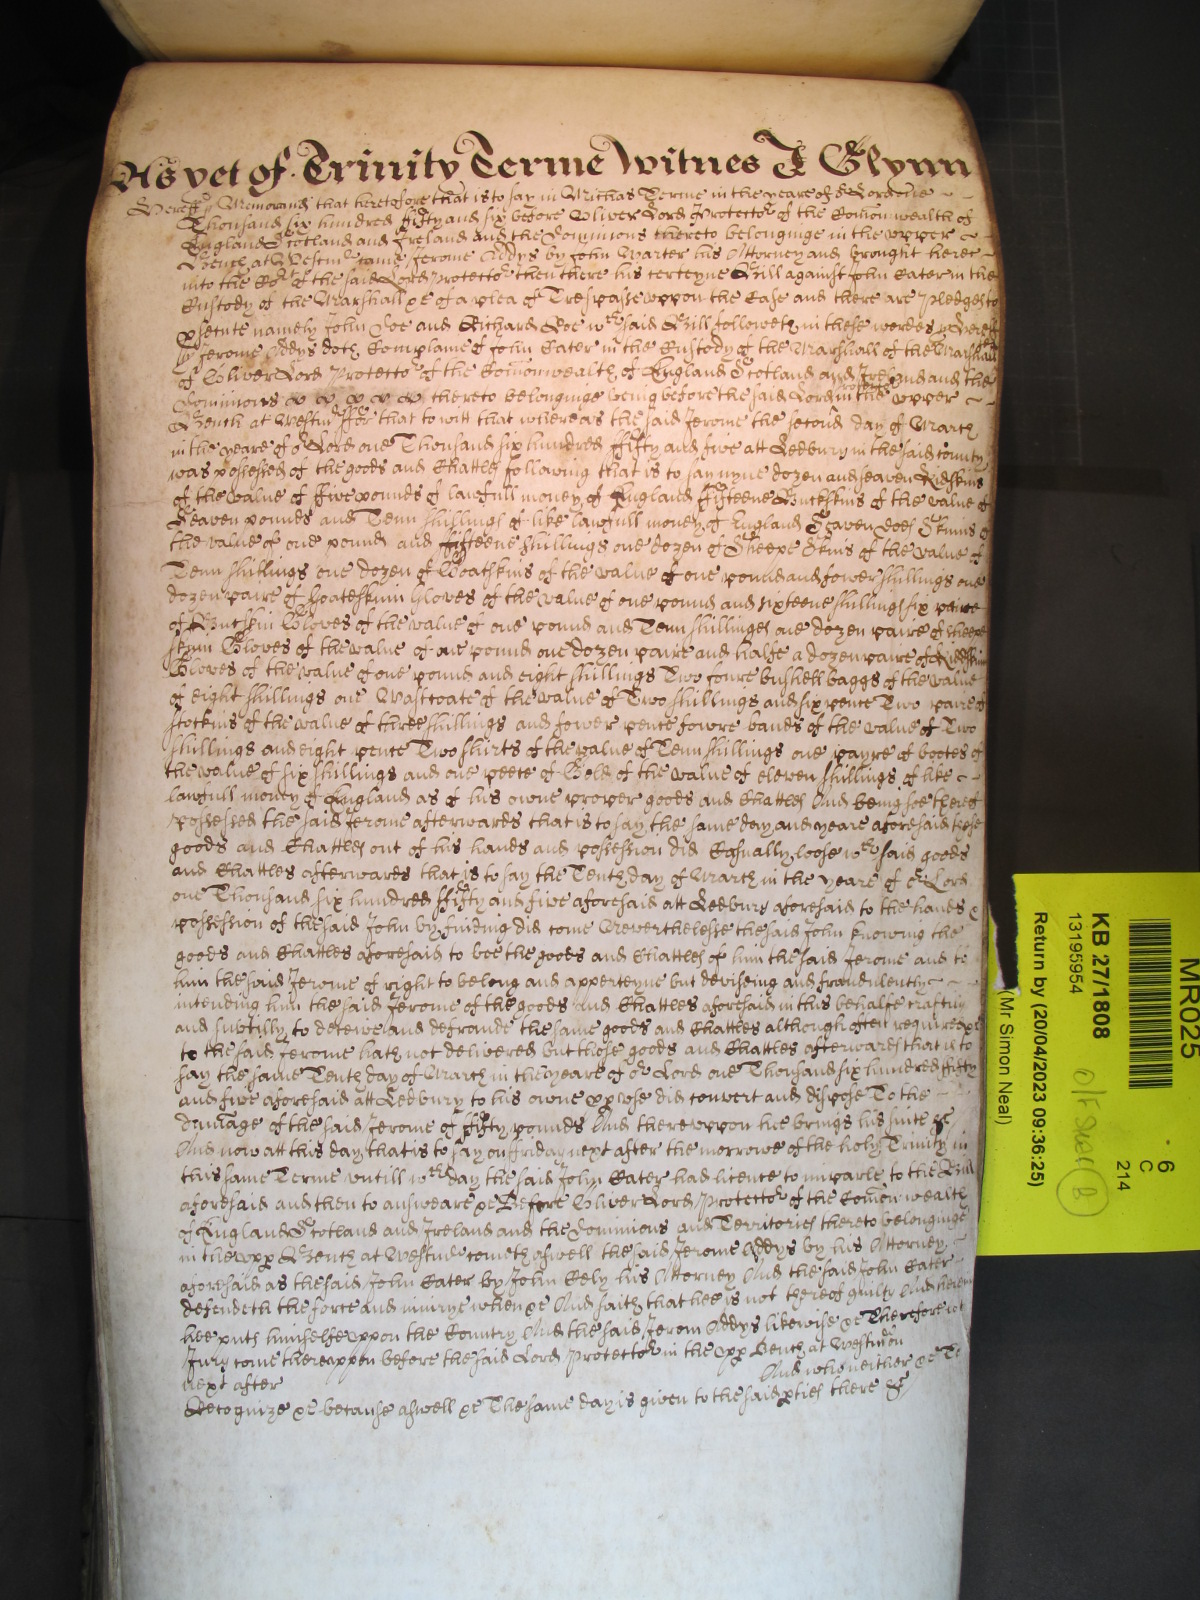 As yet of Trinity Terme Witnes J Glynn
Hereff ss Memorand that heretofore that is to say in Michas Terme in the yeare of or Lord one
Thousand six hundred fifty and six before Oliver Lord Protector of the Comonwealth of
England Scotland and Ireland and the Dominions thereto belonginge in the upper
Bench at Westmr came Jerome Addys by John Warter his Attorney and brought here
into the Cort of the said Lord Protector then there his certeyne Bill against John Cater in the
Custody of the Marshall &c of a plea of Trespasse uppon the Case and there are pledges to
psecute namely John Doe and Richard Roe wch said Bill followeth in these wordes Hereff
ss Jerome Addys doth Complaine of John Cater in the Custody of the Marshall of the Marshall
of Oliver Lord Protector of the Comonwealth of England Scotland and Ireland and the
Dominions thereto belonginge being before the said Lord protector in the upper
Bench at Westmr ffor that to witt that whereas the said Jerome the second day of March
in the yeare of or Lord one Thousand six hundred ffifty and five att Ledbury in the said county
was possessed of the goods and Chattles following that is to say nyne dozen and seaven Kidskins
of the value of ffive pounds of lawfull money of England ffifteene Buckskins of the value of
Seaven pounds and Tenn shillings of like lawfull money of England Seaven does Skinns of
the value of one pound and fifteene shillings one dozen of Sheepe Skins of the value of
Tenn shillings one dozen of Goatskins of the value of one pound and fower shillings one
dozen paire of Goateskinn Gloves of the value of one pound and sixteene shillings six paire
of Buckskin Gloves of the value of one pound and Tenn shillinges one dozen paire of sheepe
skinn Gloves of the value of one pound one dozen paire and halfe a dozen paire of Kiddskinn
Gloves of the value of one pound and eight shillings Two foure bushell baggs of the value
of eight shillings one Wastcoate of the value of Two shillings and six pence Two paire of
stockins of the value of three shillings and fower pence fowre bands of the value of Two
shillings and eight pence Two shirts of the value of Tenn shillings one payre of bootes of
the value of six shillings and one peece of Gold of the value of eleven shillings of like
lawfull money of England as of his owne proper goods and Chattles And being soe thereof
possessed the said Jerome afterwards that is to say the same day and yeare aforesaid those
goods and Chattles out of his hands and possession did Casually loose wch said goods
and Chattles afterwards that is to say the Tenth day of March in the yeare of or Lord
one Thousand six hundred ffifty and five aforesaid att Ledbury aforesaid to the hands &
possession of the said John by finding did come Neverthelesse the said John knowing the
goods and Chattles aforesaid to bee the goods and Chattles of him the said Jerome and to
him the said Jerome of right to belong and apperteyne but deviseing and fraudulently
intending him the said Jerome of the goods and Chattles aforesaid in this behalfe craftily
and subtilly to deceive and defraude the same goods and Chattles although often required &c
to the said Jerome hath not delivered but those goods and Chattles afterwards that is to
say the same Tenth day of March in the yeare of or Lord one Thousand six hundred ffifty
and five aforesaid att Ledbury to his owne pp use did convert and dispose To the
damage of the said Jerome of fifty pounds And thereuppon he brings his suite &c
And now att this day that is to say on ffriday next after the morrowe of the holy Trinity in
this same Terme untill wch day the said John Cater had licence to imparle to the Bill
aforesaid and then to answeare &c Before Oliver Lord Protector of the Comon wealth
of England Scotland and Ireland and the Dominions and Territories thereto belonginge
in the upp Bench at Westmr cometh aswell the said Jerome Addys by his Attorney
aforesaid as the said John Cater by John Cely his Attorney And the said John Cater
defendeth the force and iniurye when &c And saith that hee is not thereof guilty And thereon
hee putts himselfe uppon the Country And the said Jerom Addys likewise &c Therefore let
Jury come thereuppon before the said Lord Protector in the upp Bench at Westm on
next after And who neither &c To
Recognize &c because aswell &c The same day is given to the said pties there &c
MR025
6
C
214
KB 27/1808
13195954
Return by (20/04/2023 09:36:25)
(Mr Simon Neal)